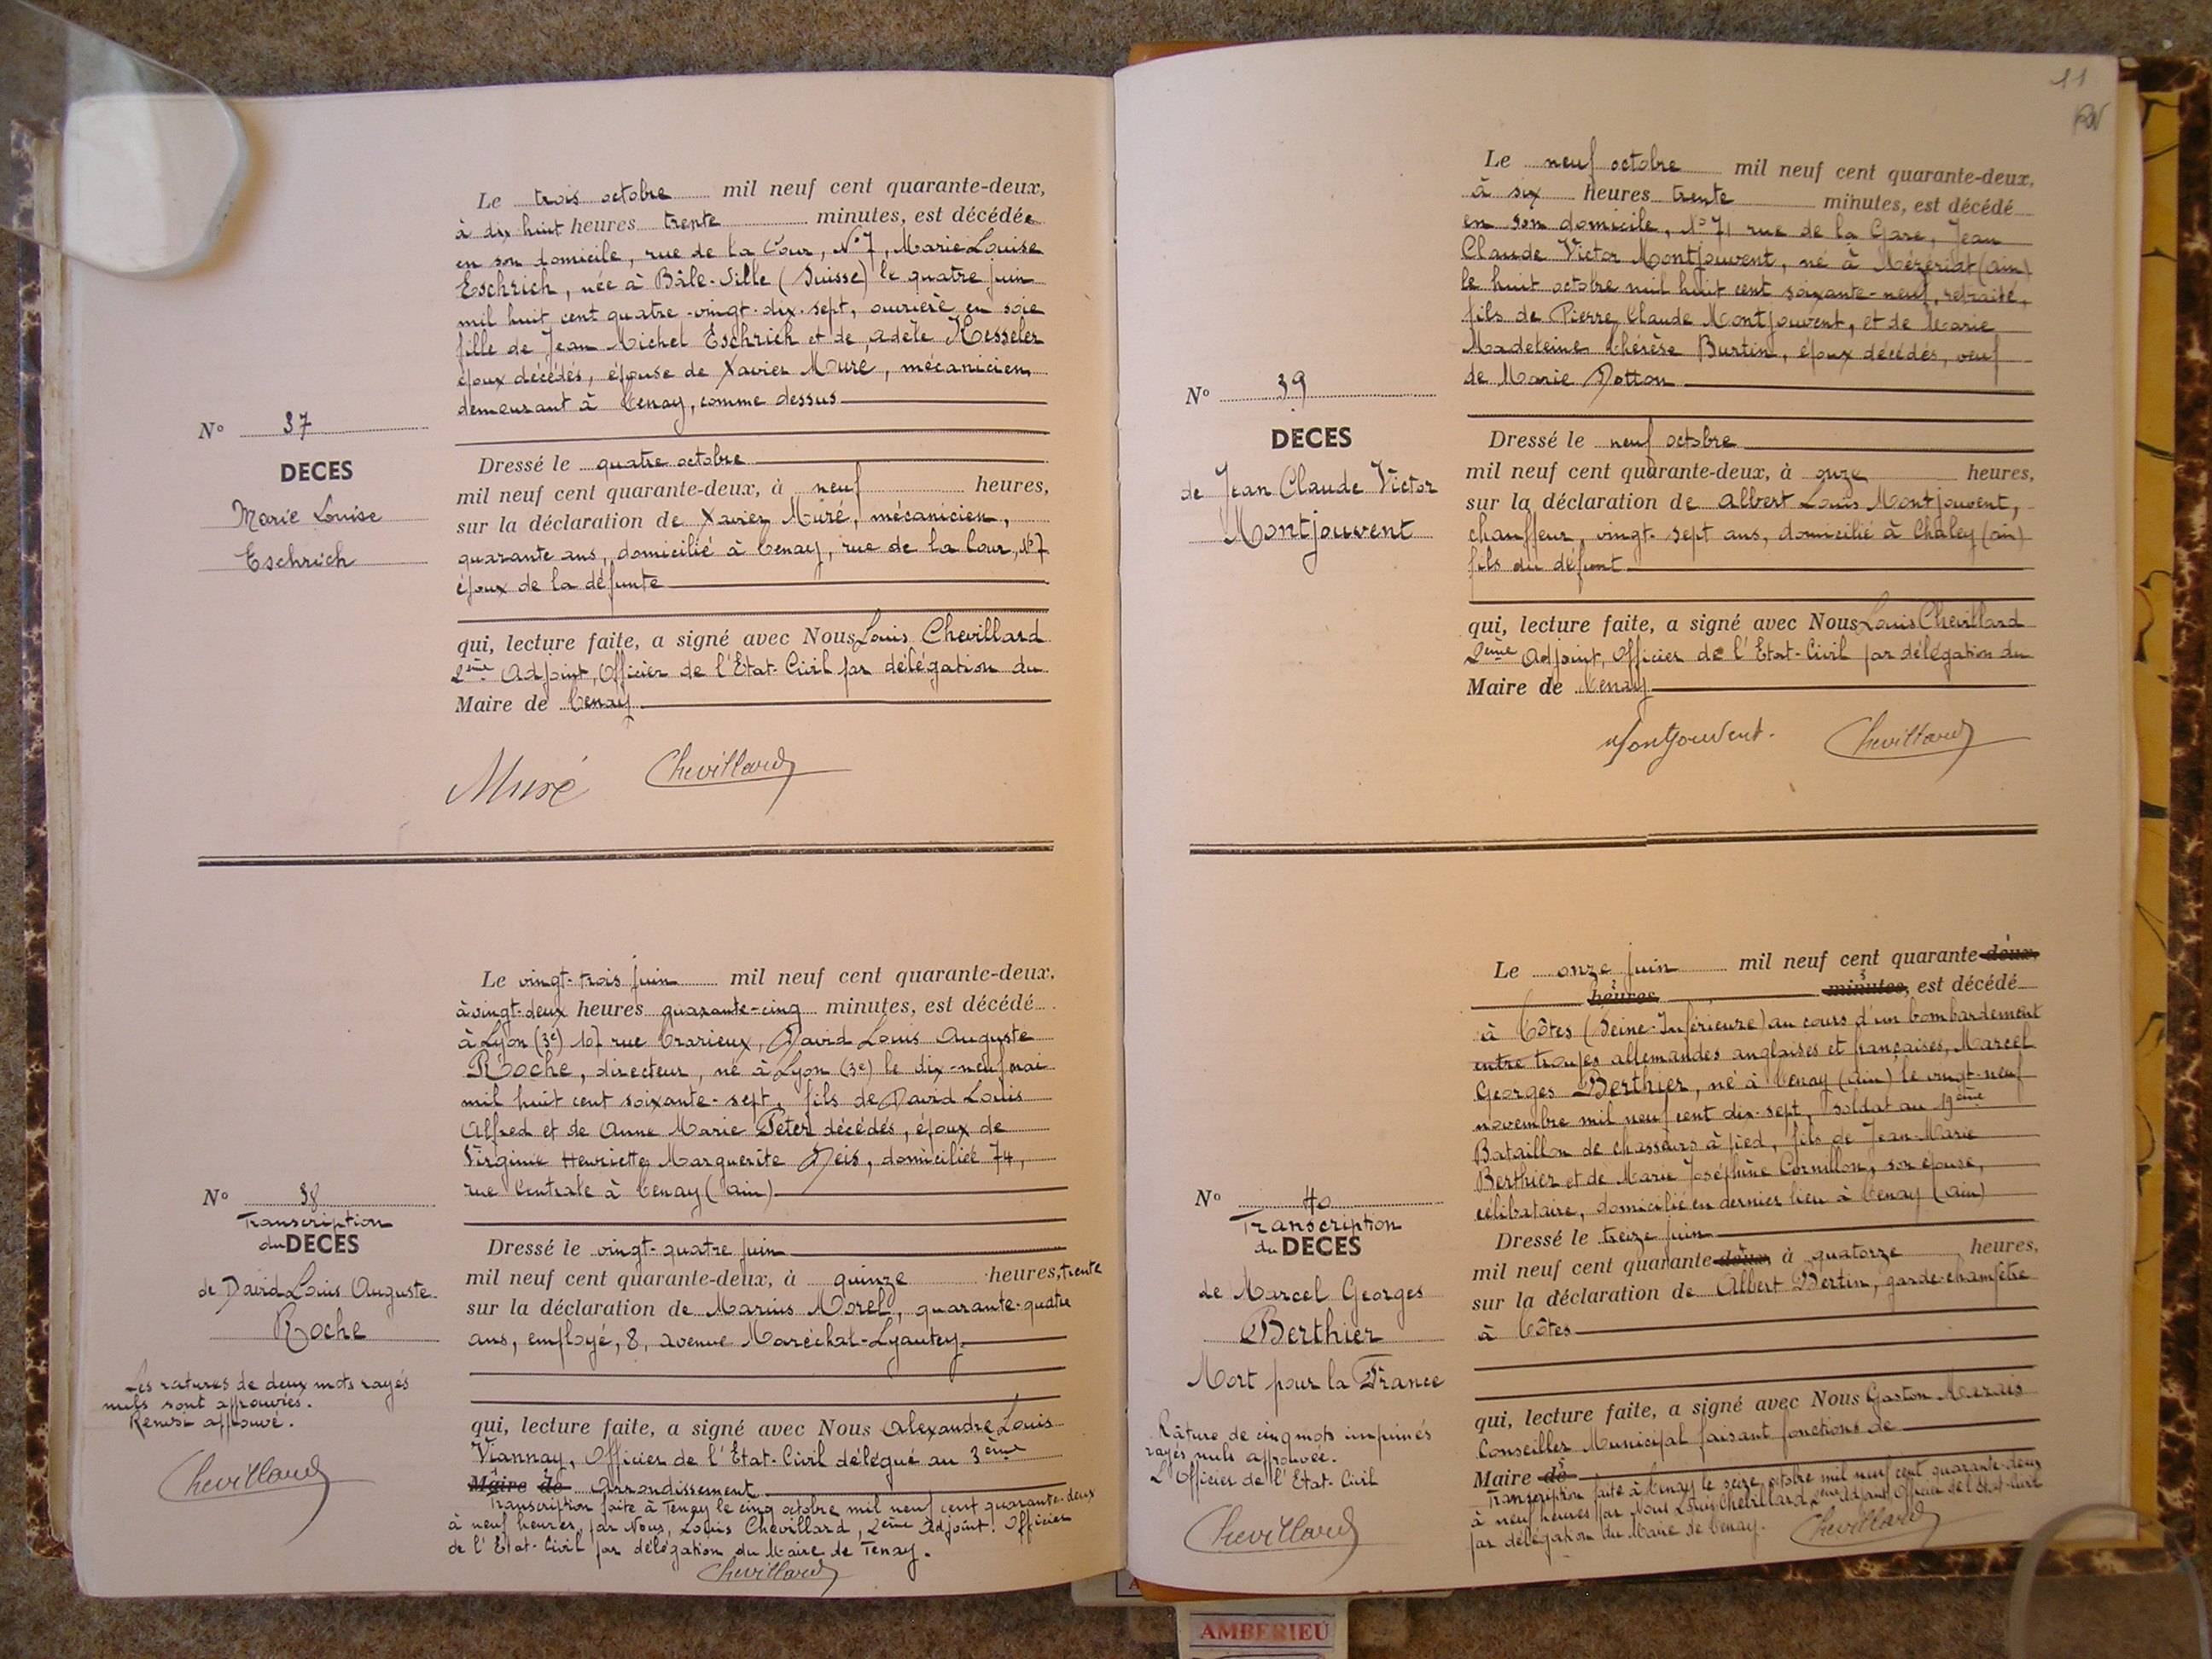 Le trois octobre mil neuf cent quarante-deux,
à dix huit heures trente minutes, est décédée
en son domicile, rue de la Cour, N°7, Marie Louise
Eschrich, née à Bâle-Ville (Suisse) le quatre juin
mil huit cent quatre-vingt-dix-sept, ouvrière en soie
fille de Jean Michel Eschrich et de Adèle Kesseler
époux décédés, épouse de Xavier Muré, mécanicien,
demeurant à Tenay, comme dessus
N° 37
DECES
Marie Louise
Eschrich
Dressé le quatre octobre
mil neuf cent quarante-deux, à neuf heures,
sur la déclaration de Xavier Muré, mécanicien,
quarante ans, domicilié à Tenay, rue de la Cour, N°7
époux de la défunte
qui, lecture faite, a signé avec Nous Louis Chevillard
2ème Adjoint, Officier de l'Etat-Civil par délégation du
Maire de Tenay
Muré Chevillard
Le vingt-trois juin mil neuf cent quarante-deux,
à vingt-deux heures quarante-cinq minutes, est décédé
à Lyon (3e) 107 rue Trarieux, David Louis Auguste
Roche, directeur, né à Lyon (3e) le dix-neuf mai
mil huit cent soixante-sept, fils de David Louis
Alfred et de Anne Marie Péter décédés, époux de
Virginie Henriette Marguerite Deis, domicilié 74,
rue Centrale à Tenay (Ain)
N° 38
Transcription
du DECES
de David Louis Auguste
Roche
Les ratures de deux mots rayés
nuls sont approuvés.
Renvoi approuvé.
Chevillard
Dressé le vingt-quatre juin
mil neuf cent quarante-deux, à quinze heures, trente
sur la déclaration de Marius Morel, quarante-quatre
ans, employé, 8, avenue Maréchal-Lyautey.
qui, lecture faite, a signé avec Nous Alexandre Louis
Viannay, Officier de l'Etat-Civil délégué au 3ème
Maire de Arrondissement
Transcription faite à Tenay le cinq octobre mil neuf cent quarante-deux
à neuf heures, par Nous, Louis Chevillard, 2ème Adjoint. Officier
de l'Etat-Civil par délégation du Maire de Tenay.
Chevillard
11
Le neuf octobre mil neuf cent quarante-deux,
à six heures trente minutes, est décédé
en son domicile, N°71 rue de la Gare, Jean
Claude Victor Montjouvent, né à Mézériat (Ain)
le huit octobre mil huit cent soixante-neuf, retraité,
fils de Pierre Claude Montjouvent, et de Marie
Madeleine Thérèse Burtin, époux décédés, veuf
de Marie Dotton
N° 39
DECES
de Jean Claude Victor
Montjouvent
Dressé le neuf octobre
mil neuf cent quarante-deux, à onze heures,
sur la déclaration de Albert Louis Montjouvent,
chauffeur, vingt-sept ans, domicilié à Chaley (Ain)
fils du défunt
qui, lecture faite, a signé avec Nous Louis Chevillard
2ème Adjoint, Officier de l'Etat-Civil par délégation du
Maire de Tenay
Montjouvent. Chevillard
Le onze juin mil neuf cent quarante-deux,
heures minutes, est décédé
à Tôtes (Seine-Inférieure) au cours d'un bombardement
entre troupes allemandes anglaises et françaises, Marcel
Georges Berthier, né à Tenay (Ain) le vingt-neuf
novembre mil neuf cent dix-sept, soldat au 19ème
Bataillon de chasseurs à pied, fils de Jean-Marie
Berthier et de Marie Joséphine Cornillon, son épouse,
célibataire, domicilié en dernier lieu à Tenay (Ain)
N° 40
Transcription
du DECES
de Marcel Georges
Berthier
Mort pour la France
Râture de cinq mots imprimés
rayés nuls approuvée.
L'Officier de l'Etat-Civil
Chevillard
Dressé le treize juin
mil neuf cent quarante-deux, à quatorze heures,
sur la déclaration de Albert Bertin, garde-champêtre
à Tôtes
qui, lecture faite, a signé avec Nous Gaston Marais
Conseiller Municipal faisant fonctions de
Maire de
Transcription faite à Tenay le seize octobre mil neuf cent quarante-deux
à neuf heures par Nous Louis Chevillard, 2ème Adjoint, Officier de l'Etat-Civil
par délégation du Maire de Tenay. Chevillard
AMBERIEU